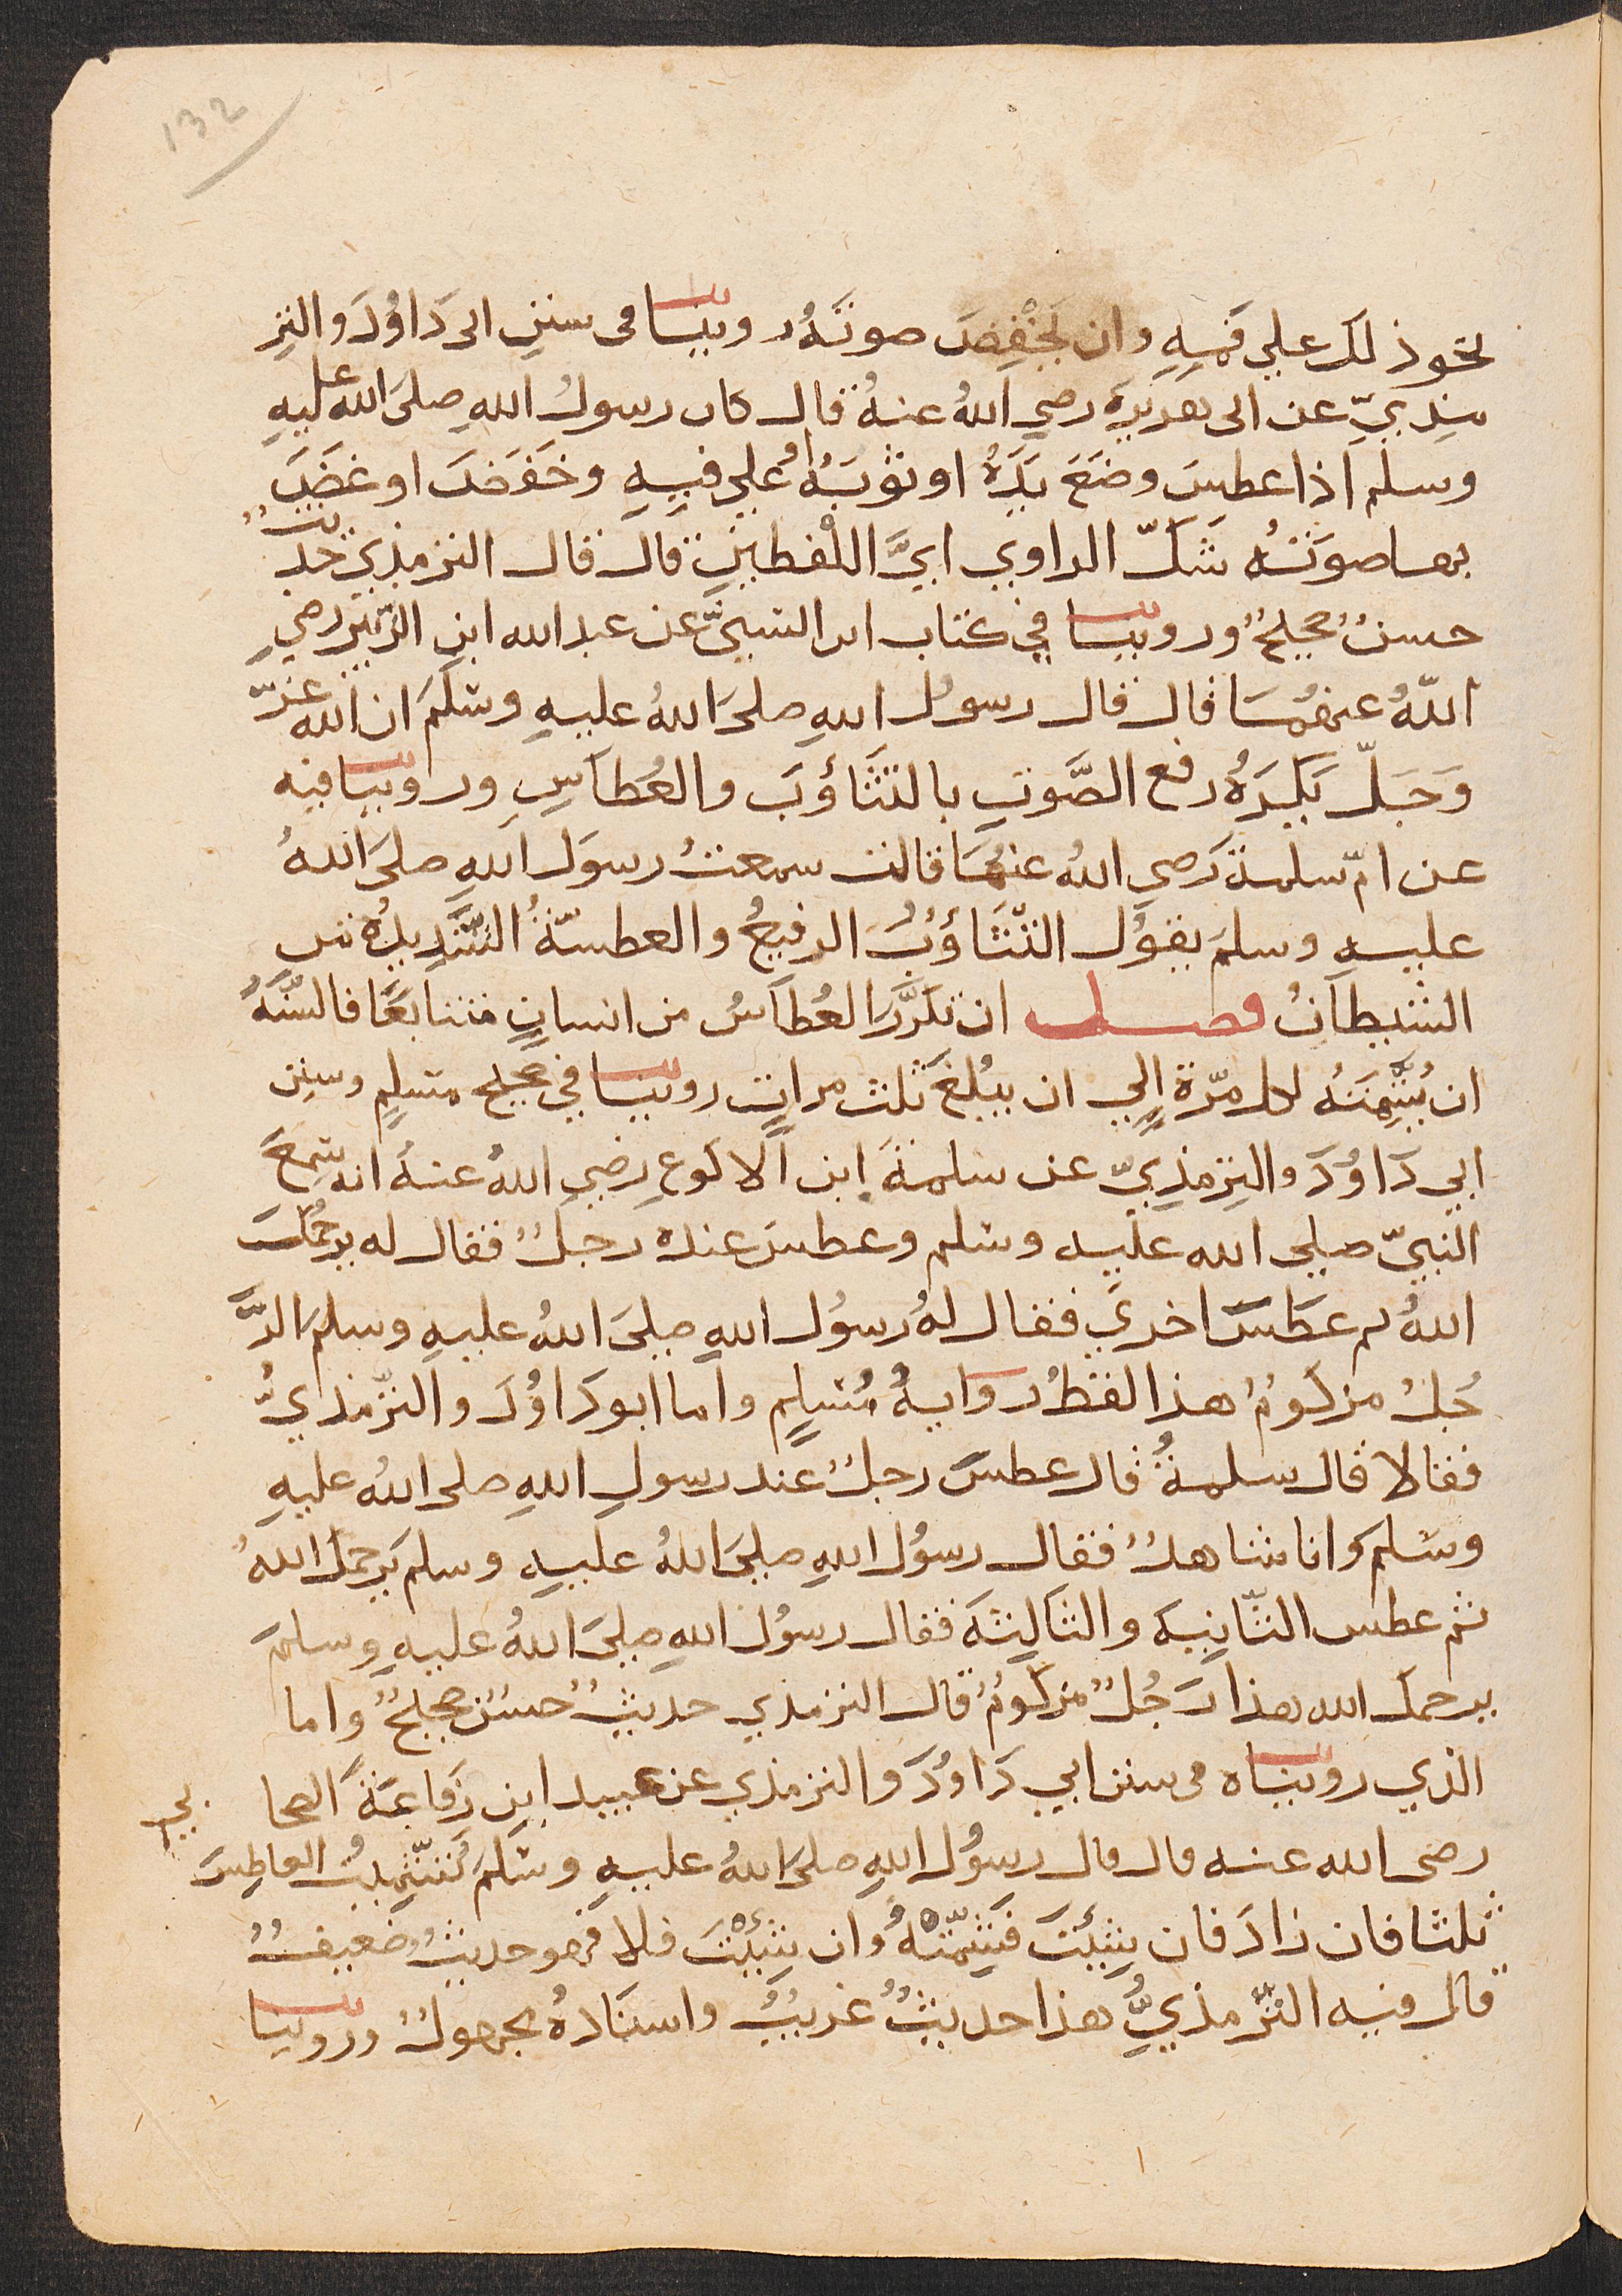 132
نحو ذلك علي فمه وان يخفض صوته روينا فى سنن ابى داود والتر
مذي عن ابى هريرة رضي الله عنه قال كان رسول الله صلى الله عليه
وسلم اذا عطس وضع يده او ثوبه علي فيه وخفض او غض
بها صوته شك الراوي اي اللفظين قال قال الترمذي حديث
حسن صحيح وروينا في كتاب ابن السني عن عبد الله ابن الزبير رضي
الله عنهما قال قال رسول الله صلى الله عليه وسلم ان الله عز
وجل يكره رفع الصوت بالتثاؤب والعطاس وروينا فيه
عن ام سلمة رضي الله عنها قالت سمعت رسول الله صلى الله
عليه وسلم يقول التثاؤب الرفيع والعطسة الشديدة من
الشيطان فصل ان تكرر العطاس من انسان متتابعا فالسنة
ان يشمته لكل مرة الي ان يبلغ ثلث مرات روينا في صحيح مسلم وسنن
ابي داود والترمذي عن سلمة ابن الاكوع رضي الله عنه انه سمع
النبي صلي الله عليه وسلم وعطس عنده رجل فقال له يرحمك
الله ثم عطس اخري فقال له رسول الله صلى الله عليه وسلم الر
جل مزكوم هذا لفظ رواية مسلم واما ابو داود والترمذي
فقالا قال سلمة قال عطس رجل عند رسول الله صلى الله عليه
وسلم وانا شاهد فقال رسول الله صلى الله عليه وسلم يرحمك الله
ثم عطس الثانية والثالثة فقال رسول الله صلى الله عليه وسلم
يرحمك الله هذا رجل مزكوم قال الترمذي حديث حسن صحيح واما
الذي رويناه فى سنن ابي داود والترمذي عن عبيد ابن رفاعة الصحا بي
رضى الله عنه قال قال رسول الله صلى الله عليه وسلم تشميت العاطس
ثلثا فان زاد فان شئت فشمته وان شئت فلا فهو حديث ضعيف
قال فيه الترمذي هذا حديث غريب واسناده مجهول وروينا